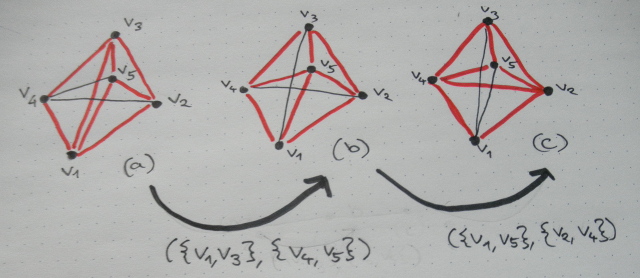 v3
v5
v4
v2
v1
(a)
v3
v5
v4
v2
v1
(b)
v3
v5
v4
v2
v1
(c)
({v1,v3}, {v4,v5})
({v1,v5}, {v2,v4})